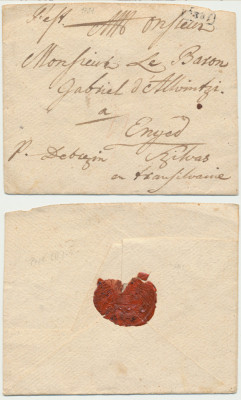 Monsieur
Monsieur Le Baron
Gabriel d'Alvintzi
a
Enyed
p. Debrezin Szilvas
en transilvaine